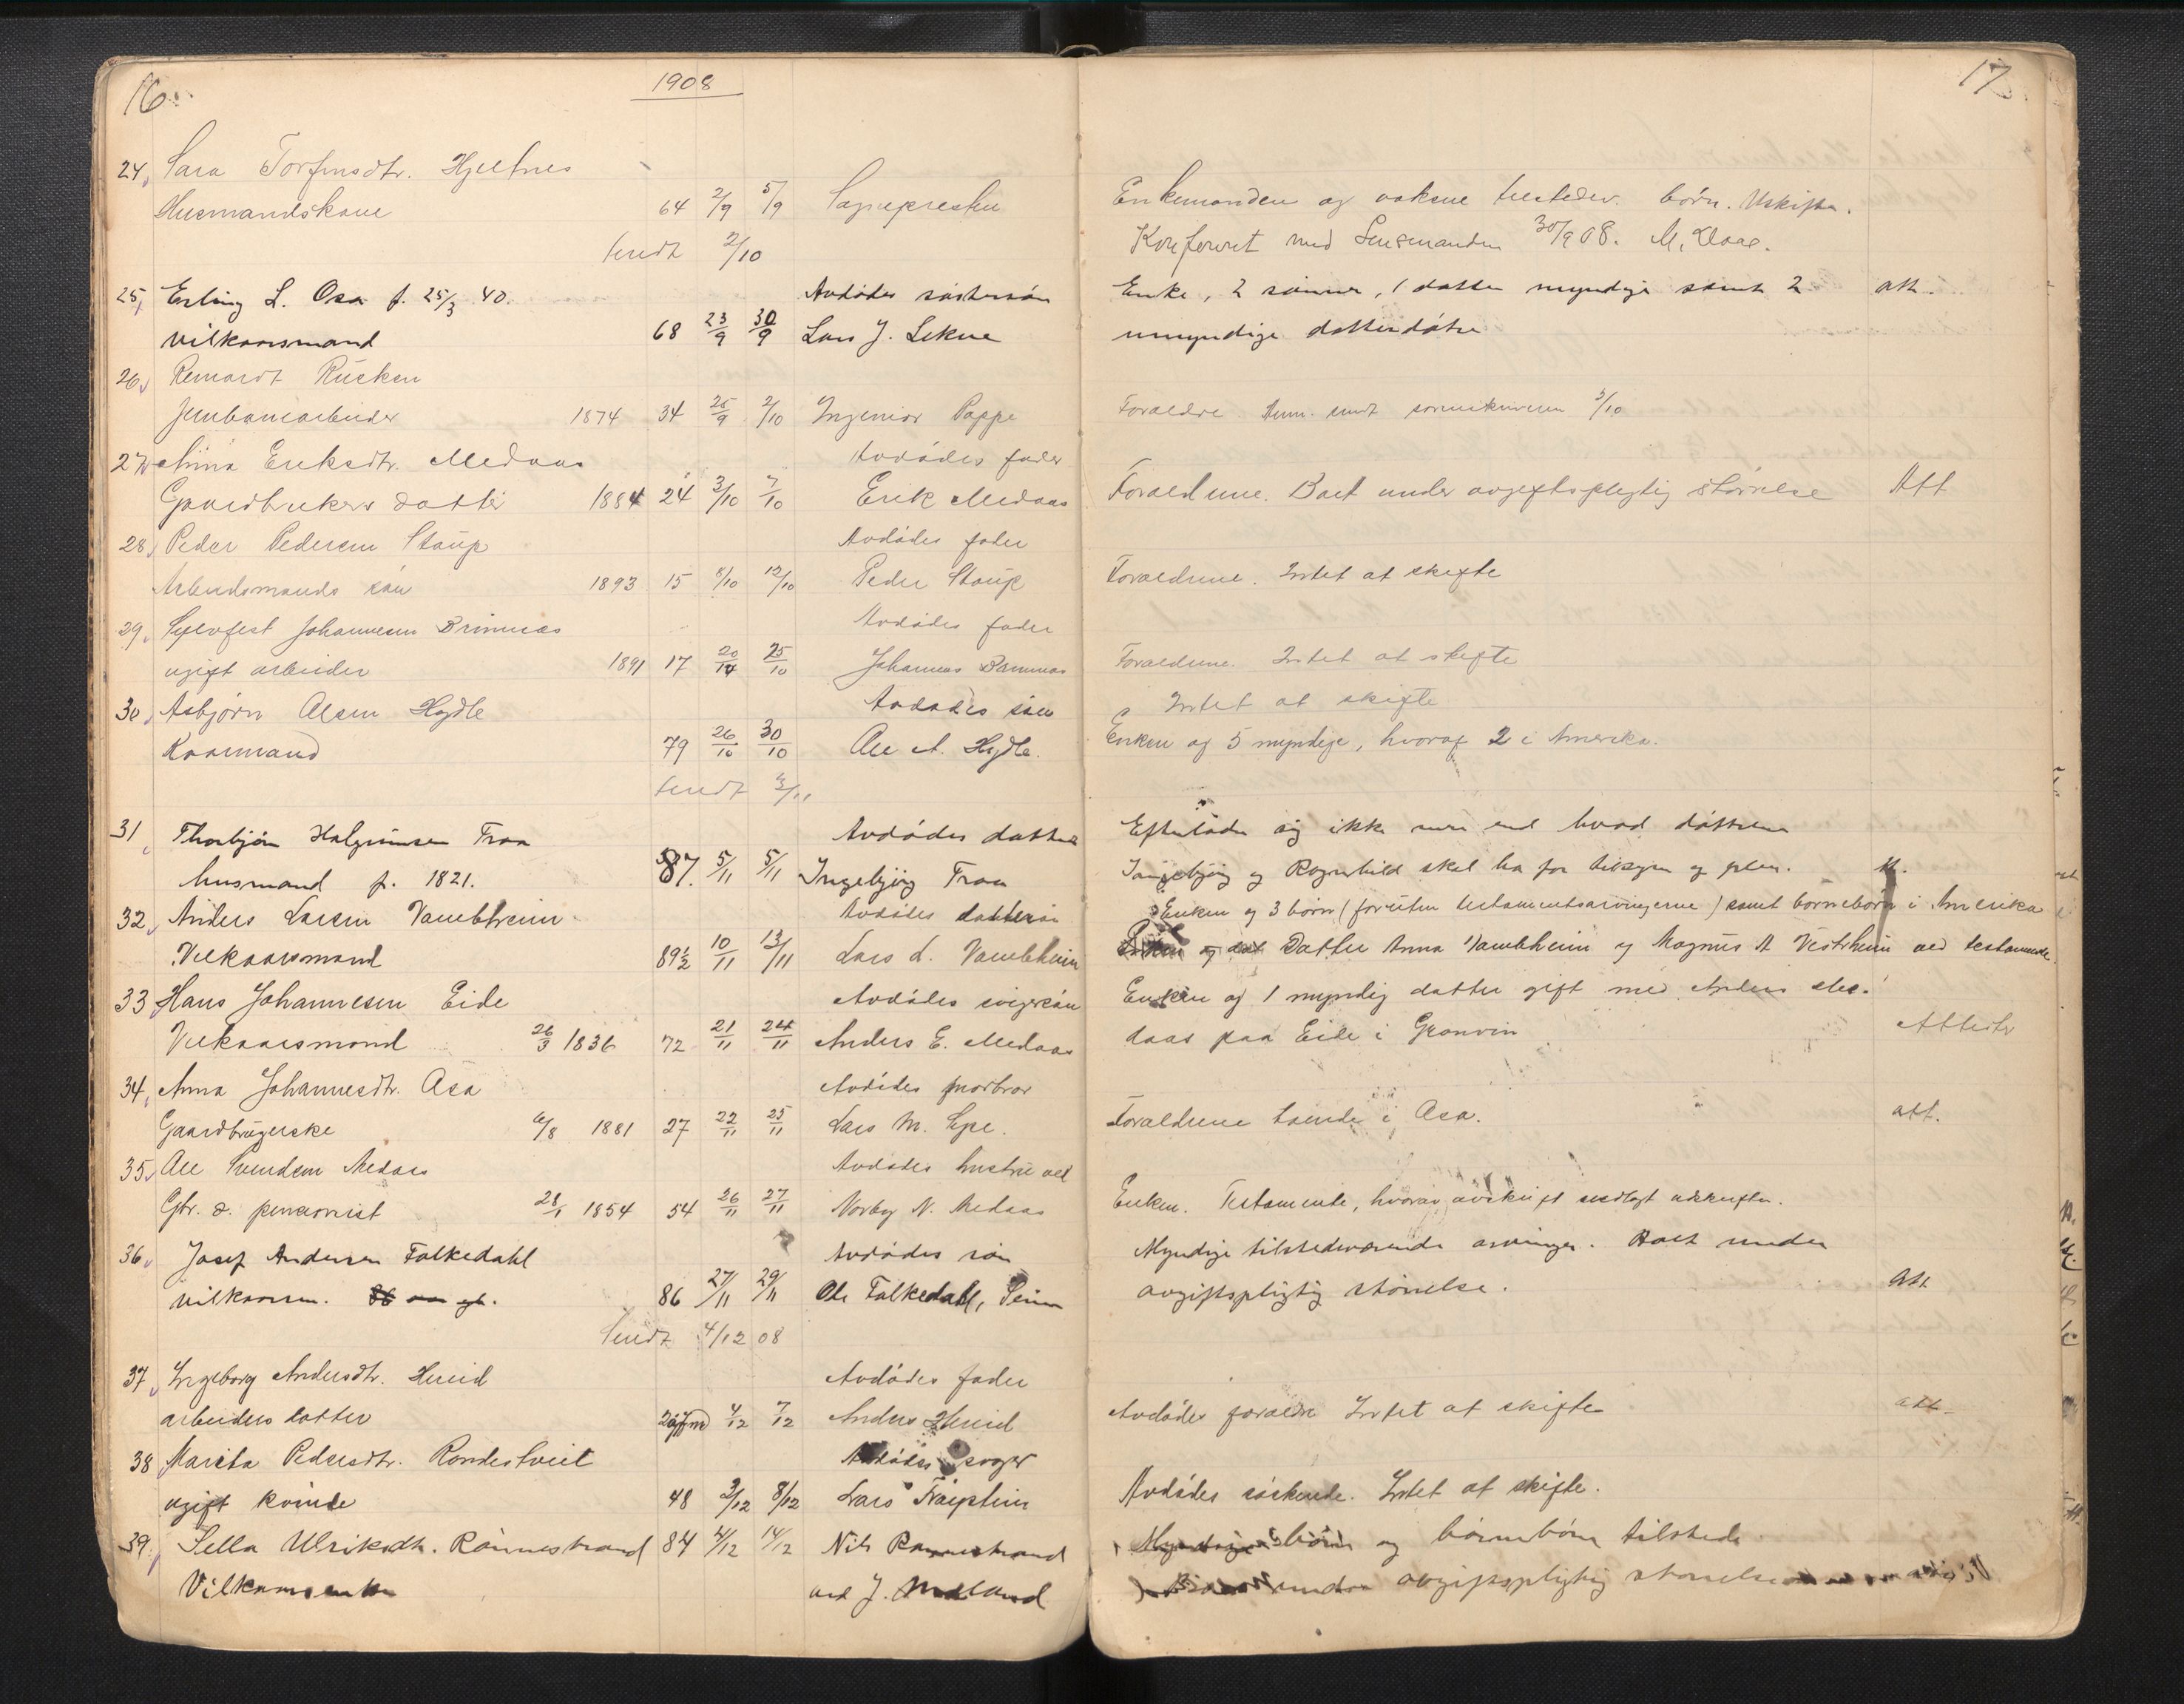 16.
1908
17.
24, Sara Torfinsdtr. Hjeltnes
Husmandskone 64 2/9 5/9 Sognepresten Enkemanden og voksne tilstedev. børn. Uskifte.
sendt 2/10 Konferert med Lensmanden 30/9 08.
25, Erling L. Osa f. 25/3 40. Avdødes søstersøn Enke, 2 sønner, 1 datter myndige samt 2 att.
vilkaarsmand 68 23/9 30/9 Lars J. Lekve umyndige datterdøtre
26, Rüsken
Jernbanearbeider 1874 34 25/9 2/10 Ingeniør Poppe Foraeldre. sendt 3/10
27, Anna Eriksdtr. Medaas Avdødes fader
Gaardbrukers datter 1884 24 3/10 7/10 Erik Medaas Foraeldrene. Boet under avgiftspligtig størrelse Att
28, Peder Pedersen Staup Avdødes fader
Arbeidsmands søn 1893 15 8/10 12/10 Peder Staup Foraeldrene. Intet at skifte
29, Sylvfest Johannesen Brimnæs Avdødes fader
ugift arbeider 1891 17 20/10 25/10 Johannes Foraeldrene. Intet at skifte
30, Asbjørn Olsen Hydle Avdødes søn Intet at skifte
Kaarmand 79 26/10 30/10 Ole A. Hydle. Enken og 5 myndige, hvoraf 2 i Amerika.
sendt 3/11
31, Thorbjørn Halgrimsen Traa Avdødes datter Efterlader sig ikke mere end hvad døttrene
husmand f. 1821. 87. 5/11 5/11 Ingebjørg Traa Ingebjørg og Ragnhild skal ha for tilsyn og pleie.
32, Anders Larsen Vambheim Avdødes dattersøn Enken og 3 børn (foruten testamentsarvingerne) samt børnebørn i Amerika
Vilkaarsmand 89½ 10/11 13/11 Lars L. Vambheim Datter Anna Vambheim og Magnus A Vestrheim ved testamente.
33, Hans Johannesen Eide Avdødes svigersøn Enken og 1 myndig datter gift med Anders Me-
Vilkaarsmand 26/3 1836 72 21/11 24/11 Anders E. Medaas daas paa Eide i Granvin Attestr
34, Anna Johannesdtr. Asa Avdødes morbror
Gaardbrugerske 6/8 1881 27 22/11 25/11 Lars M. Foraeldrene boende i Asa. att.
35, Ole Svendsen Medaas Avdødes hustru ved
Gbr. & pensionist 28/1 1854 54 26/11 27/11 N. Medaas Enken. Testamente, hvorav avskrift vedlagt utskriften.
36, Josef Andersen Folkedahl Avdødes søn Myndige tilstedeværende arvinger. Boet under
vilkaarsm. 86 27/11 29/11 Ole Folkedahl, Seim avgiftspligtig størrelse. att
sendt 4/12 08
37, Ingeborg Andersdtr. Avdødes fader
arbeiders datter 4/12 7/12 Anders Avdødes foraeldre Intet at skifte att
38, Marita Pedersdtr. Rondestveit Avdødes svoger
ugift kvinde 48 3/12 8/12 Lars Avdødes søskende. Intet at skifte.
39, Sella Ulriksdtr. Rønnestrand 84 4/12 14/12 Nils Rønnestrand Myndige børn og børnebørn tilstede
Vilkaarsenke ved J. Mæland Boet under avgiftspligtig størrelse